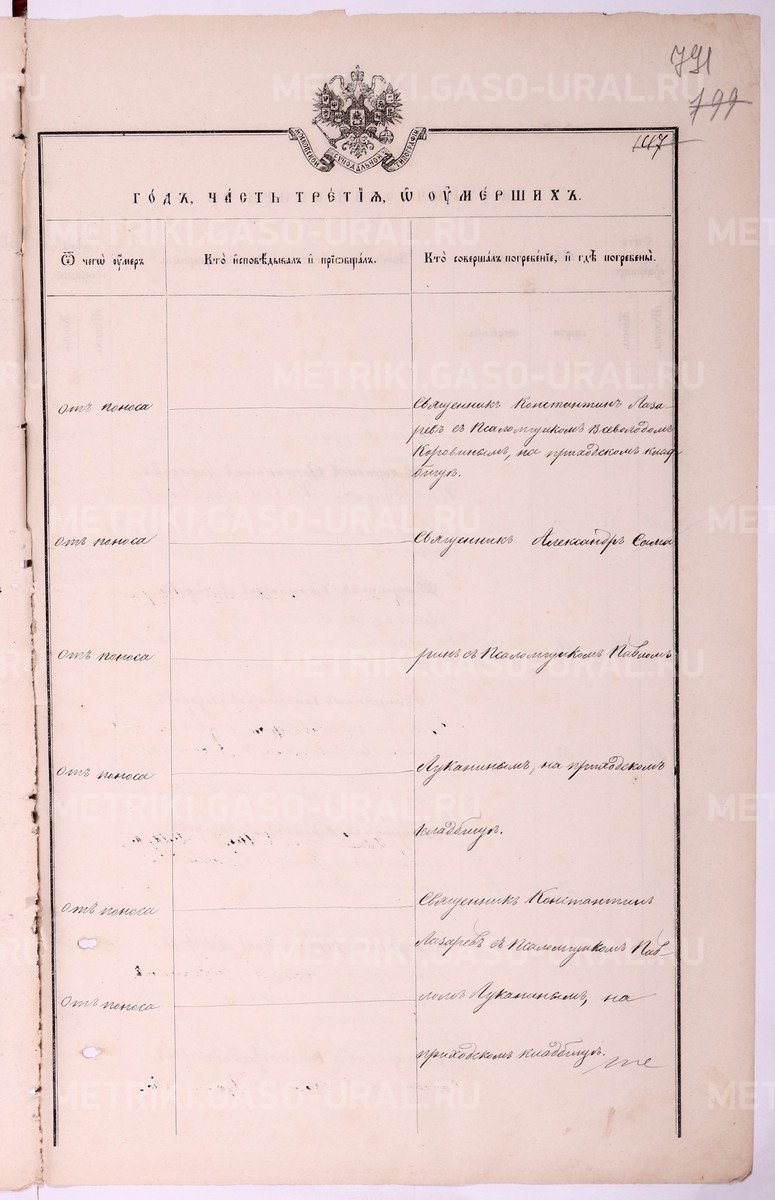 791
799
147
МОСКОВСКОЙ СѴНОДАЛЬНОЙ ТИПОГРАФІИ
ГО́ДЪ, ЧА́СТЬ ТРЕ́ТІѦ, Ѡ҆ ОУ҆МЕ́РШИХЪ.
Ѿ чегѡ̀ оу҆́меръ
Кто̀ и҆сповѣ́дывалъ и҆ прїѡбща́лъ.
Кто̀ соверша́лъ погребе́нїе, и҆ гдѣ̀ погребены̀.
отъ поноса
Священникъ Константинъ Лаза-
ревъ съ Псаломщикомъ Всеволодомъ
Коровинымъ, на приходскомъ клад
бищѣ.
отъ поноса
Священникъ Александръ Сама
отъ поноса
ринъ съ Псаломщикомъ Павломъ
отъ поноса
Луканинымъ, на приходскомъ
кладбищѣ.
отъ поноса
Священникъ Константинъ
Лазаревъ съ Псаломщикомъ Пав-
отъ поноса
ломъ Луканинымъ, на
приходскомъ кладбищѣ.
METRIKI.GASO-URAL.RU